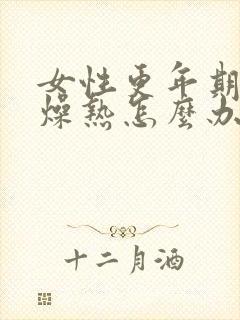 女性更年期
燥熱怎麼办
十二月酒